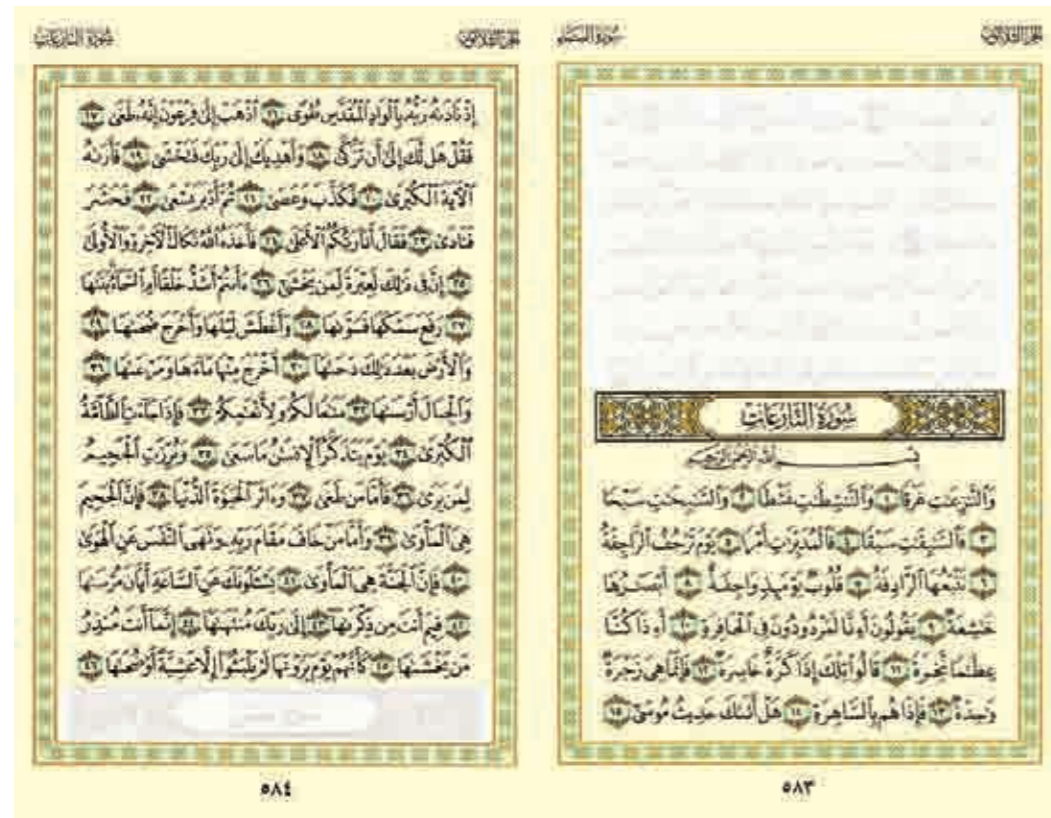 الجزء الثلاثون
سورة النبإ
سُورَةُ النَّازِعَاتِ
بِسْمِ اللَّهِ الرَّحْمَٰنِ الرَّحِيمِ
وَٱلنَّٰزِعَٰتِ غَرْقًا ١ وَٱلنَّٰشِطَٰتِ نَشْطًا ٢ وَٱلسَّٰبِحَٰتِ سَبْحًا
٣ فَٱلسَّٰبِقَٰتِ سَبْقًا ٤ فَٱلْمُدَبِّرَٰتِ أَمْرًا ٥ يَوْمَ تَرْجُفُ ٱلرَّاجِفَةُ
٦ تَتْبَعُهَا ٱلرَّادِفَةُ ٧ قُلُوبٌ يَوْمَئِذٍ وَاجِفَةٌ ٨ أَبْصَٰرُهَا
خَٰشِعَةٌ ٩ يَقُولُونَ أَءِنَّا لَمَرْدُودُونَ فِى ٱلْحَافِرَةِ ١٠ أَءِذَا كُنَّا
عِظَٰمًا نَّخِرَةً ١١ قَالُوا۟ تِلْكَ إِذًا كَرَّةٌ خَاسِرَةٌ ١٢ فَإِنَّمَا هِىَ زَجْرَةٌ
وَٰحِدَةٌ ١٣ فَإِذَا هُم بِٱلسَّاهِرَةِ ١٤ هَلْ أَتَىٰكَ حَدِيثُ مُوسَىٰٓ ١٥
٥٨٣
الجزء الثلاثون
سورة النازعات
إِذْ نَادَىٰهُ رَبُّهُۥ بِٱلْوَادِ ٱلْمُقَدَّسِ طُوًى ١٦ ٱذْهَبْ إِلَىٰ فِرْعَوْنَ إِنَّهُۥ طَغَىٰ ١٧
فَقُلْ هَل لَّكَ إِلَىٰٓ أَن تَزَكَّىٰ ١٨ وَأَهْدِيَكَ إِلَىٰ رَبِّكَ فَتَخْشَىٰ ١٩ فَأَرَىٰهُ
ٱلْءَايَةَ ٱلْكُبْرَىٰ ٢٠ فَكَذَّبَ وَعَصَىٰ ٢١ ثُمَّ أَدْبَرَ يَسْعَىٰ ٢٢ فَحَشَرَ
فَنَادَىٰ ٢٣ فَقَالَ أَنَا۠ رَبُّكُمُ ٱلْأَعْلَىٰ ٢٤ فَأَخَذَهُ ٱللَّهُ نَكَالَ ٱلْءَاخِرَةِ وَٱلْأُولَىٰٓ
٢٥ إِنَّ فِى ذَٰلِكَ لَعِبْرَةً لِّمَن يَخْشَىٰٓ ٢٦ ءَأَنتُمْ أَشَدُّ خَلْقًا أَمِ ٱلسَّمَآءُ بَنَىٰهَا
٢٧ رَفَعَ سَمْكَهَا فَسَوَّىٰهَا ٢٨ وَأَغْطَشَ لَيْلَهَا وَأَخْرَجَ ضُحَىٰهَا ٢٩
وَٱلْأَرْضَ بَعْدَ ذَٰلِكَ دَحَىٰهَآ ٣٠ أَخْرَجَ مِنْهَا مَآءَهَا وَمَرْعَىٰهَا ٣١
وَٱلْجِبَالَ أَرْسَىٰهَا ٣٢ مَتَٰعًا لَّكُمْ وَلِأَنْعَٰمِكُمْ ٣٣ فَإِذَا جَآءَتِ ٱلطَّآمَّةُ
ٱلْكُبْرَىٰ ٣٤ يَوْمَ يَتَذَكَّرُ ٱلْإِنسَٰنُ مَا سَعَىٰ ٣٥ وَبُرِّزَتِ ٱلْجَحِيمُ
لِمَن يَرَىٰ ٣٦ فَأَمَّا مَن طَغَىٰ ٣٧ وَءَاثَرَ ٱلْحَيَوٰةَ ٱلدُّنْيَا ٣٨ فَإِنَّ ٱلْجَحِيمَ
هِىَ ٱلْمَأْوَىٰ ٣٩ وَأَمَّا مَنْ خَافَ مَقَامَ رَبِّهِۦ وَنَهَى ٱلنَّفْسَ عَنِ ٱلْهَوَىٰ
٤٠ فَإِنَّ ٱلْجَنَّةَ هِىَ ٱلْمَأْوَىٰ ٤١ يَسْـَٔلُونَكَ عَنِ ٱلسَّاعَةِ أَيَّانَ مُرْسَىٰهَا
٤٢ فِيمَ أَنتَ مِن ذِكْرَىٰهَآ ٤٣ إِلَىٰ رَبِّكَ مُنتَهَىٰهَآ ٤٤ إِنَّمَآ أَنتَ مُنذِرُ
مَن يَخْشَىٰهَا ٤٥ كَأَنَّهُمْ يَوْمَ يَرَوْنَهَا لَمْ يَلْبَثُوٓا۟ إِلَّا عَشِيَّةً أَوْ ضُحَىٰهَا ٤٦
٥٨٤